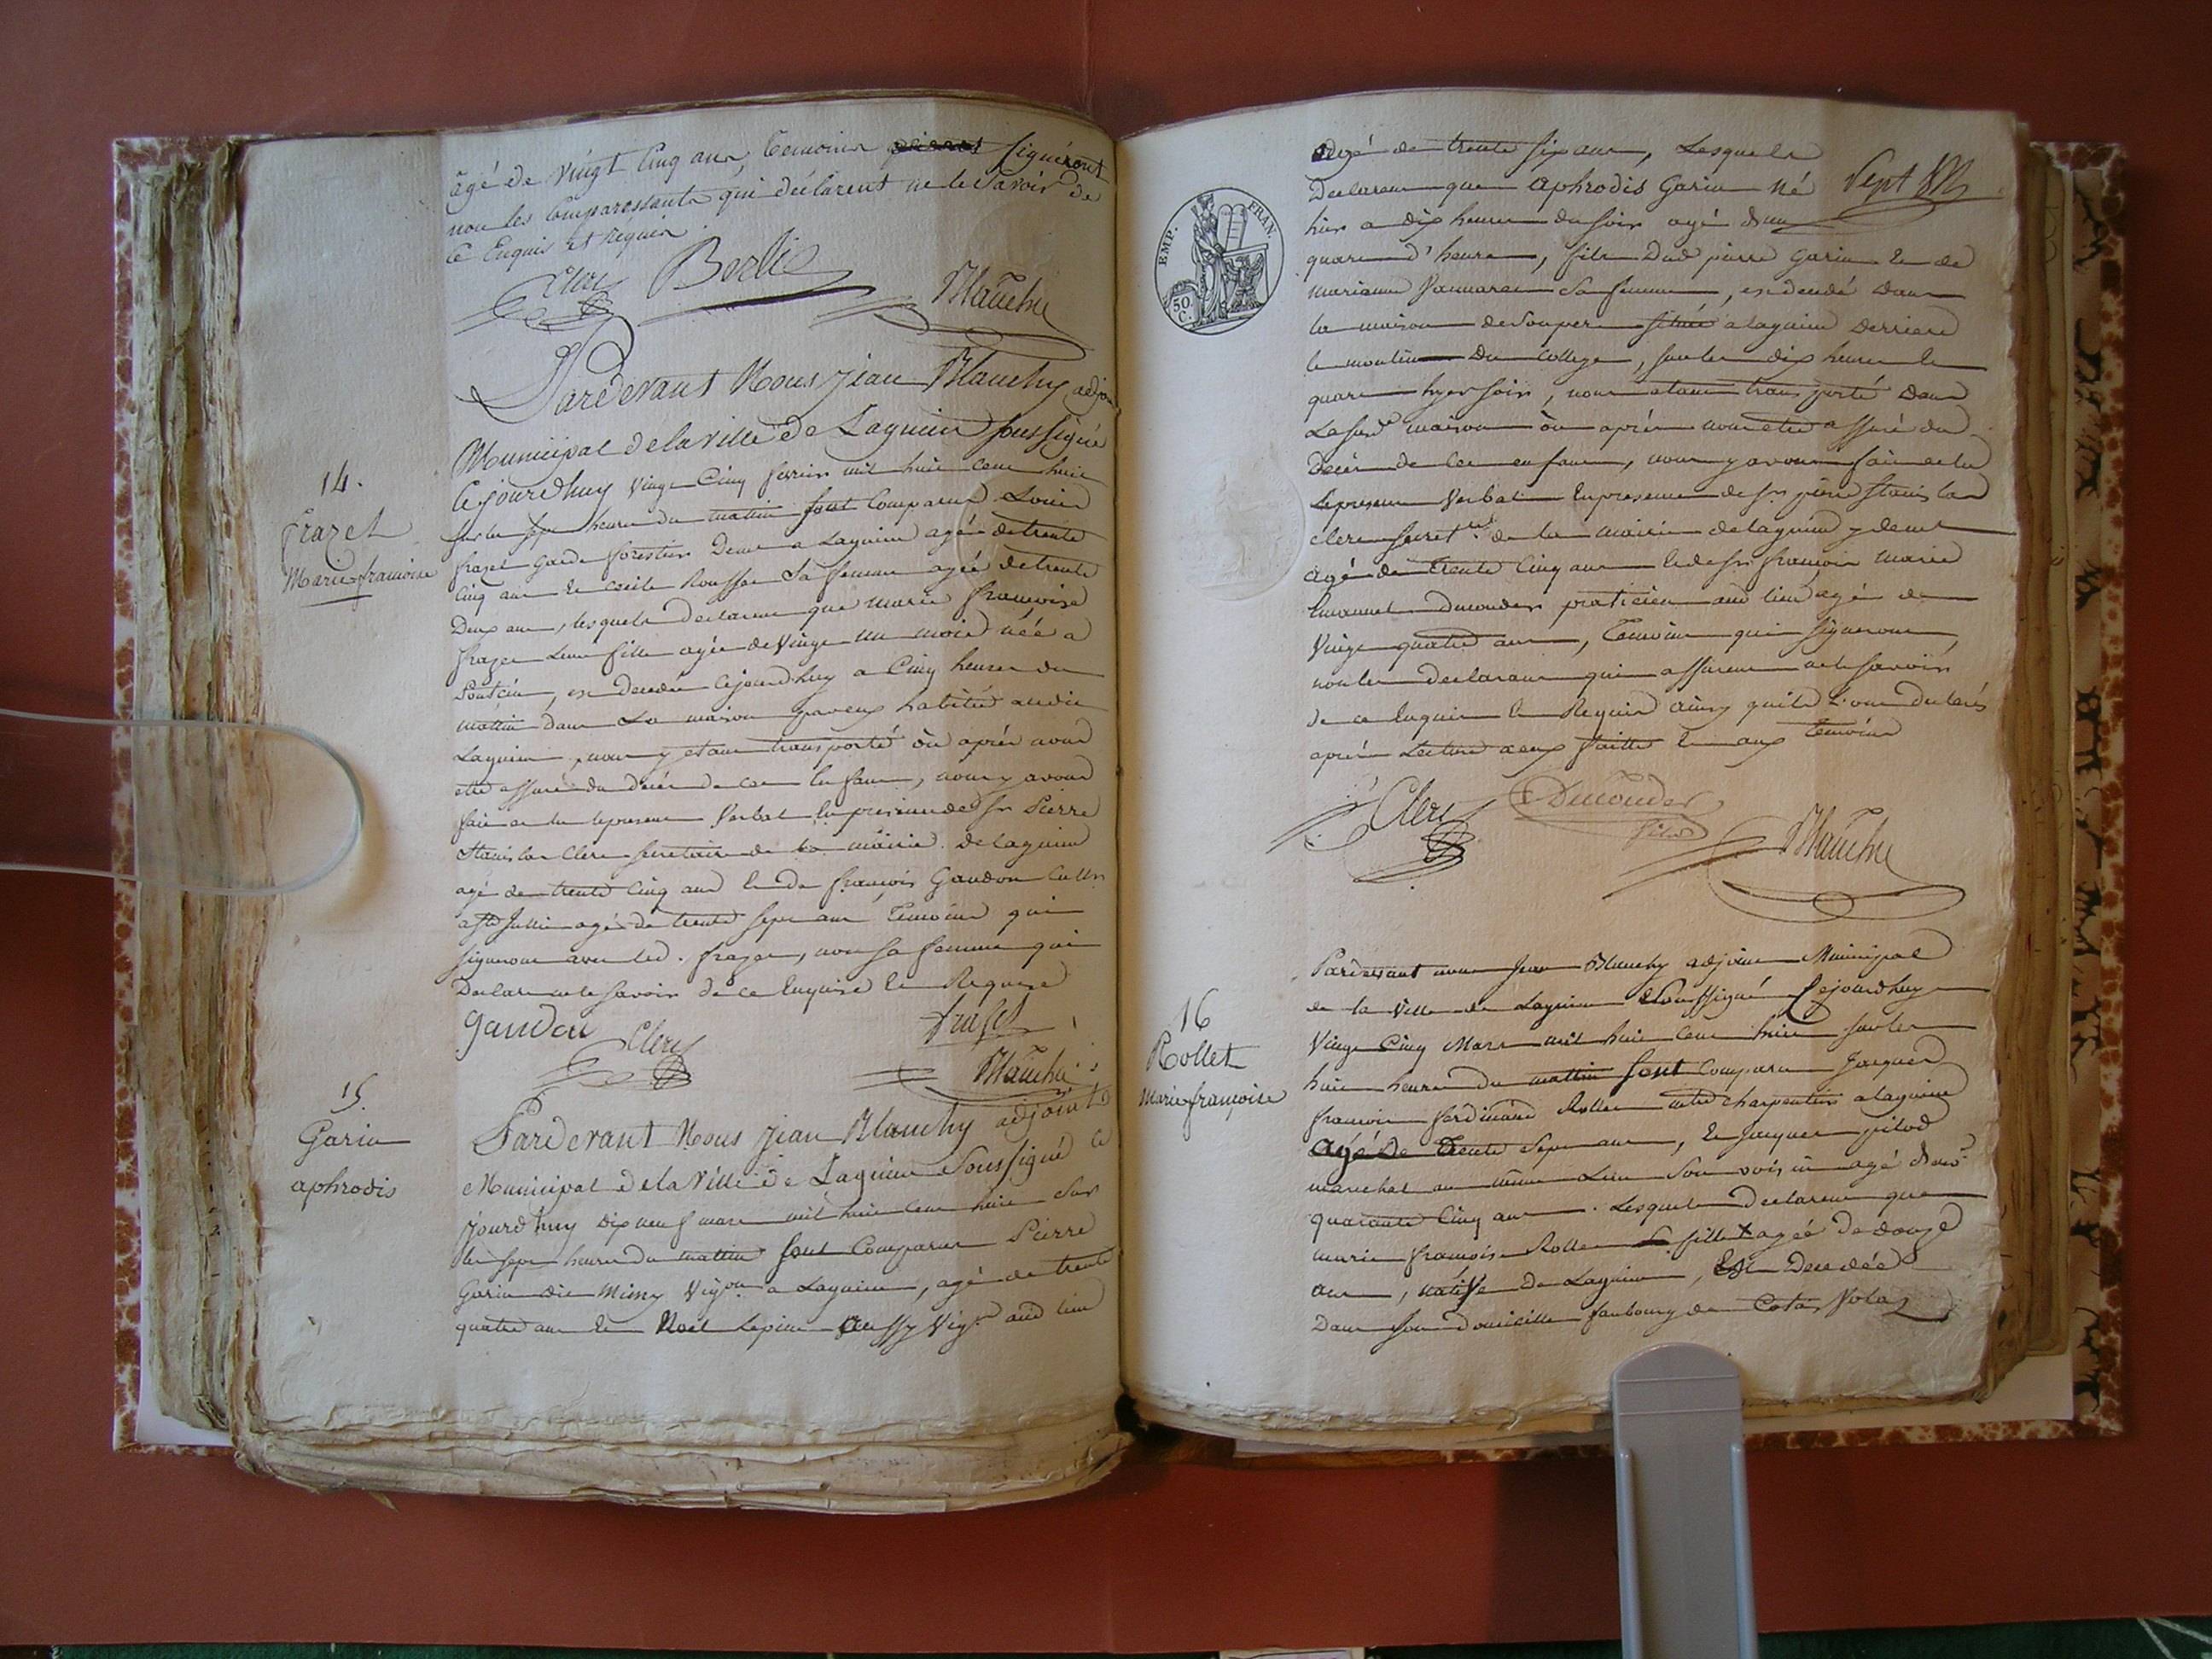 âgé de Vingt Cinq ans, temoins signéront
non les Comparessants qui déclarent ne le Savoir de
Ce Enquis et réquis
Clerc Berlie Blanchy
Pardevant Nous Jean Blanchy adjoi
Municipal de la Ville de Lagnieu soussigné
14.
frazet
Marie françoise
Cejourdhuy vingt Cinq fevrier mil huit cent huit
sur les sept heures du mattin sont Comparus Louis
frazet garde forestier demt a Lagnieu agé de trente
Cinq ans et Sa femme agée de trente
Deux ans, lesquels declarent que marie françoise
frazet leur fille agée de Vingt un mois née a
est decedée Cejourdhuy a Cinq heures du
mattin dans La maison par eux habitée audit
Lagnieu, nous y etant transporté ou après nous
etre assuré du décès de cet Enfant, nous y avons
fait de le present Verbal En presence de Sr Pierre
Stanislas Clerc secretaire de la mairie de lagnieu
agé de trente Cinq ans et de françois Gandon Cultr
a St Jullin agé de trente sept ans temoins qui
signeront avec led. frazet, non sa femme qui
Declare ne le savoir de ce Enquise et Requise
gandon Clerc frazet
Blanchy
15.
Garin
aphrodis
Pardevant Nous Jean Blanchy adjoint
Municipal de la Ville de Lagnieu Soussigné Ce
jourdhuy dix neuf mars mil huit cent huit Sur
les sept heures du mattin sont Comparus Pierre
Garin dit Mimy Vigon a Lagnieu, agé de trente
quatre ans et Noel Lepine Aussy Vign aud lieu
EMP. FRAN.
50 C.
agé de trente six ans, Lesquels
Declarent que aphrodis Garin né
Sept
hier a dix heures du soir agé d'un
quart d'heure, fils Dud pierre Garin et de
mariane Sa femme, est decedé dans
la maison de Son pere située a lagnieu derriere
le moulin Du College, sur les dix heures le
quart hyer soir, nous etant transporté dans
La susd maison où après nous etre assuré du
décès de cet enfant, nous y avons fait de le
le present Verbal En presence de Sr pierre Stanislas
clerc secret.re de la mairie de lagnieu y demt
agé de trente Cinq ans et de Sr françois marie
Emanuel praticien aud lieu agé de
Vingt quatre ans, Temoins qui signeront,
non les declarants qui assurent ne le savoir
de ce Enquis et Requis ainsy qu'ils l'ont declaré
après Lecture a eux faitte et aux temoins
Clerc
fils
Blanchy
16
Rollet
Marie françoise
Pardevant nous Jean Blanchy adjoint Municipal
de la Ville de Lagnieu Soussigné Cejourdhuy
Vingt Cinq Mars mil huit cent huit sur les
huit heures du mattin sont Comparu Jacques
françois ferdinand Rollet mtre charpentier a lagnieu
Agé De Trente Sept ans, et Jacques pitiod
marechal au même Lieu Son voisin agé de
quarante Cinq ans. Lesquels declarent que
marie françoise Rollet fille x agée de douze
ans, native de Lagnieu, Est Decedée
Dans son domicille faubourg de